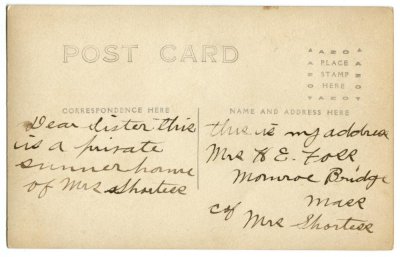 POST CARD
AZO
PLACE
STAMP
HERE
AZO
CORRESPONDENCE HERE
NAME AND ADDRESS HERE
Dear Sister this
is a private
summer home
of Mrs Shortess
this is my address
Mrs H E.
Monroe Bridge
Mass
c/of Mrs Shortess